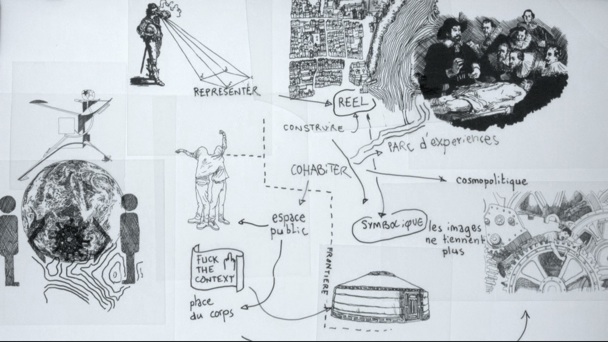 REPRÉSENTER
RÉEL
CONSTRUIRE
PARC D'EXPERIENCES
COHABITER
cosmopolitique
espace
public
SYMBOLIQUE
les images
ne tiennent
plus
FUCK
THE
CONTEXT
FRONTIERE
place
du corps